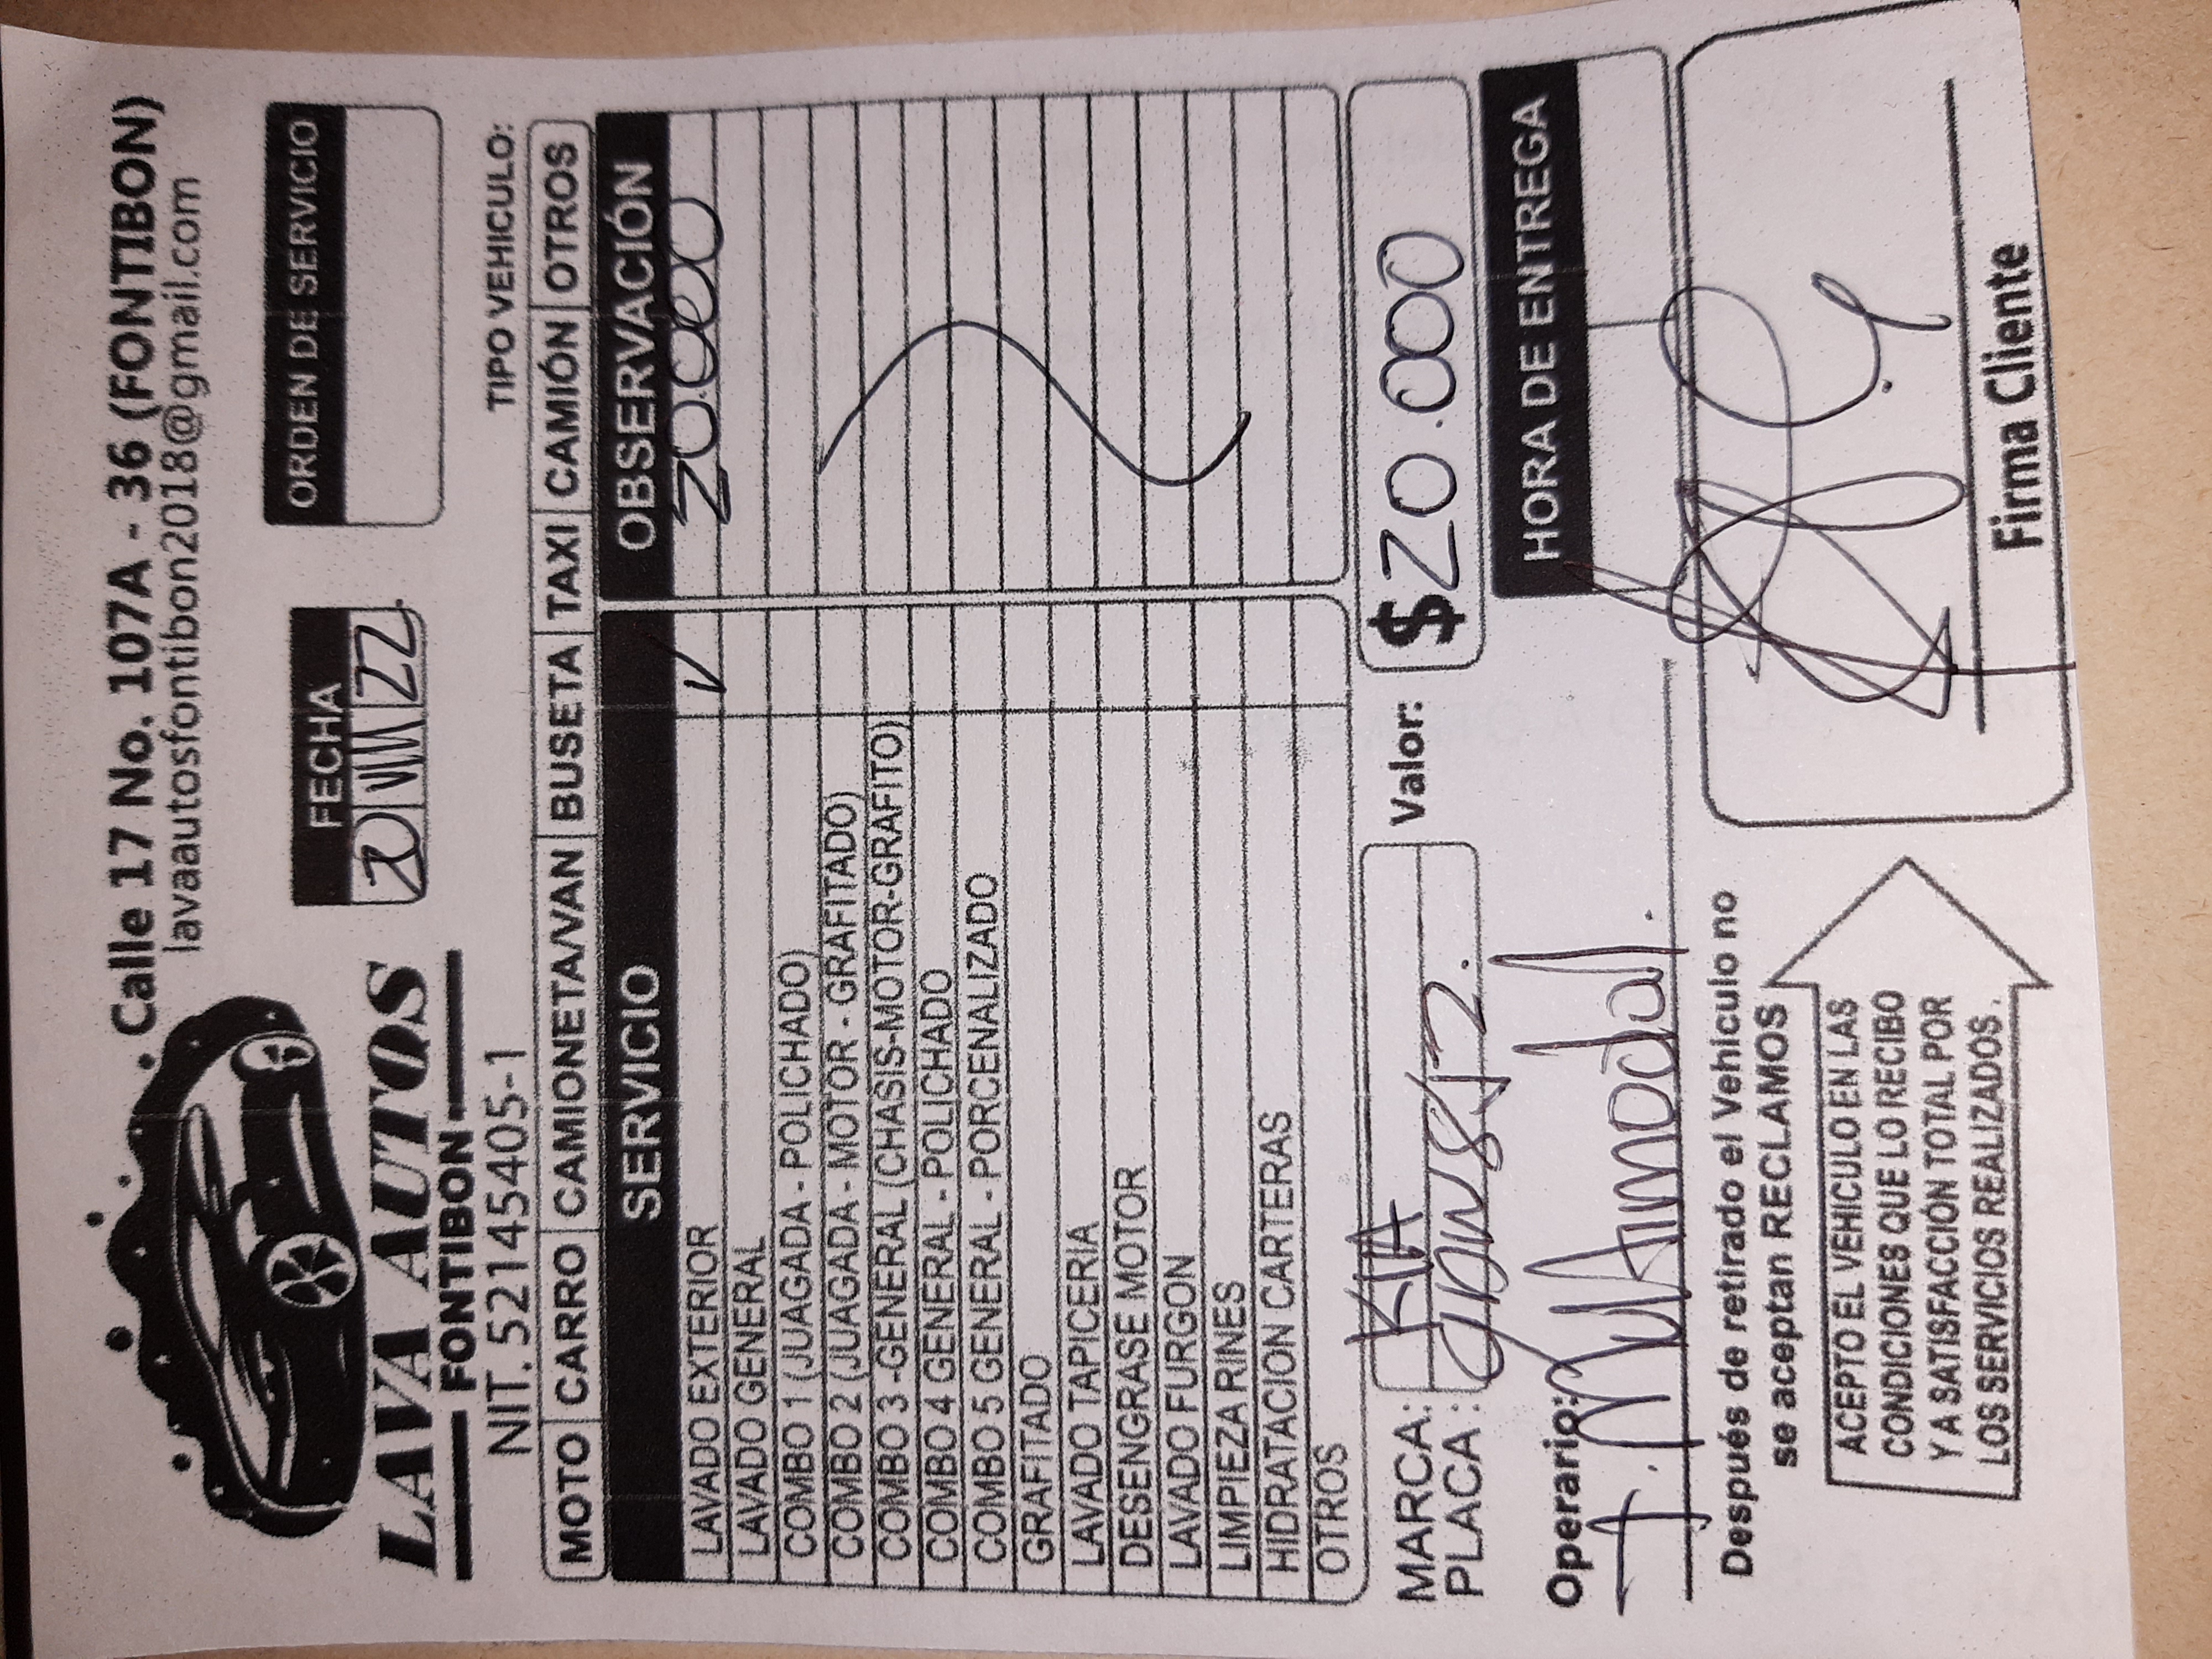 Calle 17 No. 107A - 36 (FONTIBON)
lavaautosfontibon2018@gmail.com
LAVA AUTOS
FONTIBON
NIT. 52145405-1
FECHA
22
ORDEN DE SERVICIO
TIPO VEHICULO:
MOTO CARRO CAMIONETA/VAN BUSETA TAXI CAMIÓN OTROS
SERVICIO OBSERVACIÓN
LAVADO EXTERIOR ✓ 20.000
LAVADO GENERAL
COMBO 1 (JUAGADA - POLICHADO)
COMBO 2 (JUAGADA - MOTOR - GRAFITADO)
COMBO 3 -GENERAL (CHASIS-MOTOR-GRAFITO)
COMBO 4 GENERAL - POLICHADO
COMBO 5 GENERAL - PORCENALIZADO
GRAFITADO
LAVADO TAPICERIA
DESENGRASE MOTOR
LAVADO FURGON
LIMPIEZA RINES
HIDRATACION CARTERAS
OTROS
MARCA: KIA
PLACA:
Valor: $20.000
Operario:
HORA DE ENTREGA
Después de retirado el Vehículo no
se aceptan RECLAMOS
ACEPTO EL VEHICULO EN LAS
CONDICIONES QUE LO RECIBO
Y A SATISFACCIÓN TOTAL POR
LOS SERVICIOS REALIZADOS.
Firma Cliente